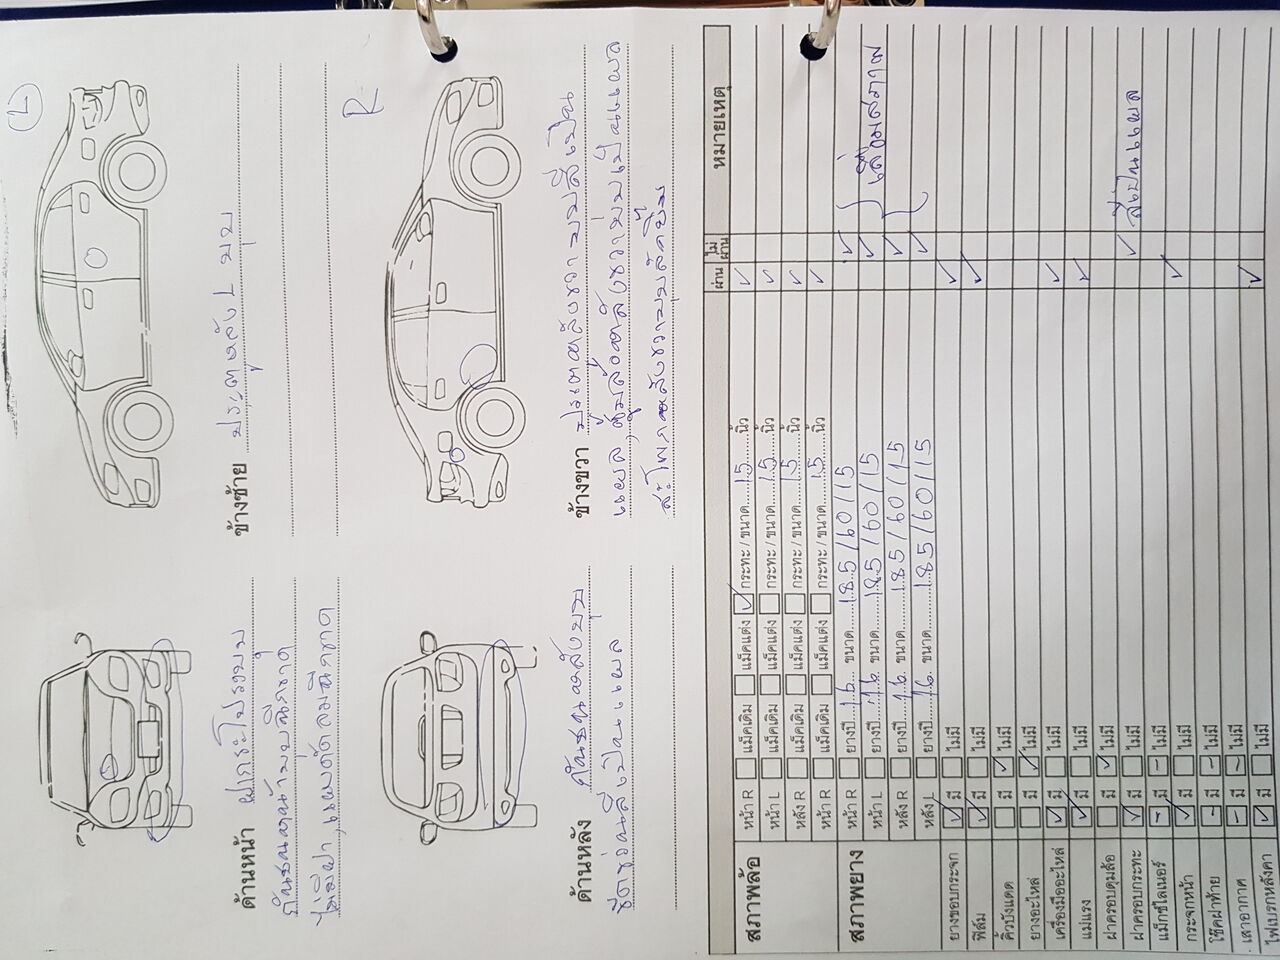 L
R
ด้านหน้า ฝากระโปรงบุบ
กันชนหน้า
ข้างซ้าย ประตูหลัง L บุบ
ด้านหลัง กันชนหลังบุบ
สีเป็นแผล
ข้างขวา ประตูหลังขวา บุบสีเป็น
แผล
สภาพล้อ หน้า R แม็คเดิม แม็คแต่ง ✓ กระทะ / ขนาด 15 นิ้ว ✓
หน้า L แม็คเดิม แม็คแต่ง กระทะ / ขนาด 15 นิ้ว ✓
หลัง R แม็คเดิม แม็คแต่ง กระทะ / ขนาด 15 นิ้ว ✓
หน้า R แม็คเดิม แม็คแต่ง กระทะ / ขนาด 15 นิ้ว ✓
ผ่าน ไม่ผ่าน หมายเหตุ
สภาพยาง หน้า R ยางปี 16 ขนาด 185/60/15 ✓
หน้า L ยางปี 16 ขนาด 185/60/15 ✓ เสื่อมสภาพ
หลัง R ยางปี 16 ขนาด 185/60/15 ✓
หลัง L ยางปี 16 ขนาด 185/60/15 ✓
ยางขอบกระจก ✓ มี ไม่มี ✓
ฟิล์ม ✓ มี ไม่มี ✓
คิ้วบังแดด มี ✓ ไม่มี
ยางอะไหล่ มี ✓ ไม่มี
เครื่องมืออะไหล่ ✓ มี ไม่มี ✓
แม่แรง ✓ มี ไม่มี ✓
ฝาครอบดุมล้อ มี ✓ ไม่มี
ฝาครอบกระทะ ✓ มี ไม่มี ✓ สีเป็นแผล
แม็กซ์ไลเนอร์ - มี - ไม่มี
กระจกหน้า ✓ มี ไม่มี ✓
โช๊คฝาท้าย - มี - ไม่มี
เสาอากาศ - มี - ไม่มี
ไฟเบรกหลังคา ✓ มี ไม่มี ✓